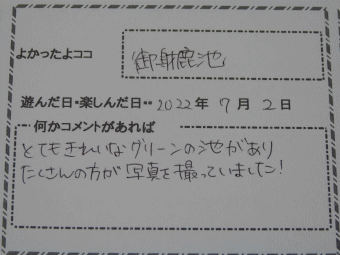 よかったよココ
御射鹿池
遊んだ日・楽しんだ日・・2022年7月2日
何かコメントがあれば
とてもきれいなグリーンの池があり
たくさんの方が写真を撮っていました!